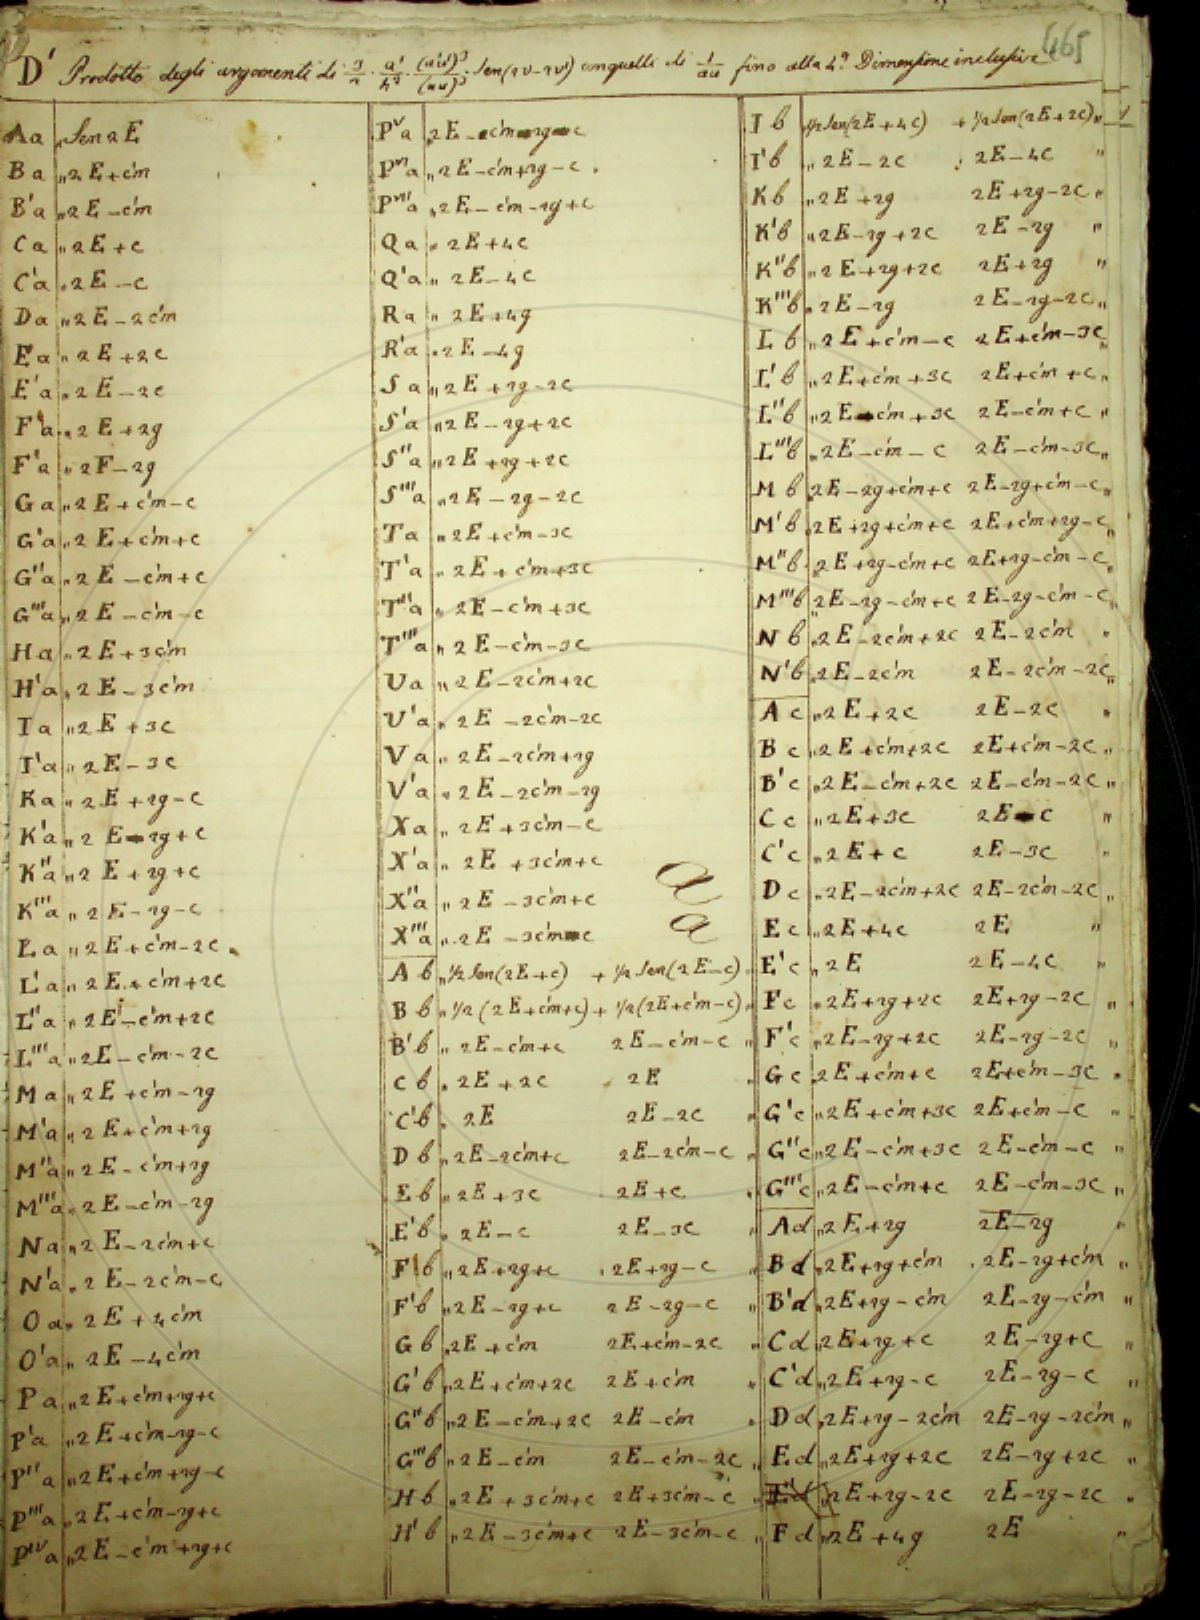 465
D' Prodotto degli argomenti di 3/2 . a'/h² . (a'u')³/(au)³ . Sen(2v-2v') con quelli di 1/au fino alla 4ª Dimensione inclusive
Aa „ Sen 2E
Ba „ 2E+c'm
B'a „ 2E-c'm
Ca „ 2E+c
C'a „ 2E-c
Da „ 2E-2c'm
Ea „ 2E+2c
E'a „ 2E-2c
Fa „ 2E+2g
F'a „ 2E-2g
Ga „ 2E+c'm-c
G'a „ 2E+c'm+c
G''a „ 2E-c'm+c
G'''a „ 2E-c'm-c
Ha „ 2E+3c'm
H'a „ 2E-3c'm
Ia „ 2E+3c
I'a „ 2E-3c
Ka „ 2E+2g-c
K'a „ 2E-2g+c
K''a „ 2E+2g+c
K'''a „ 2E-2g-c
La „ 2E+c'm-2c
L'a „ 2E+c'm+2c
L''a „ 2E-c'm+2c
L'''a „ 2E-c'm-2c
Ma „ 2E+c'm-2g
M'a „ 2E+c'm+2g
M''a „ 2E-c'm+2g
M'''a „ 2E-c'm-2g
Na „ 2E-2c'm+c
N'a „ 2E-2c'm-c
Oa „ 2E+4c'm
O'a „ 2E-4c'm
Pa „ 2E+c'm+2g+c
P'a „ 2E+c'm-2g-c
P''a „ 2E+c'm+2g-c
P'''a „ 2E+c'm-2g+c
P'ᵛa „ 2E-c'm+2g+c
Pᵛa „ 2E-c'm-2g-c
Pᵛ'a „ 2E-c'm+2g-c
Pᵛ''a „ 2E-c'm-2g+c
Qa „ 2E+4c
Q'a „ 2E-4c
Ra „ 2E+4g
R'a „ 2E-4g
Sa „ 2E+2g-2c
S'a „ 2E-2g+2c
S''a „ 2E+2g+2c
S'''a „ 2E-2g-2c
Ta „ 2E+c'm-3c
T'a „ 2E+c'm+3c
T''a „ 2E-c'm+3c
T'''a „ 2E-c'm-3c
Ua „ 2E-2c'm+2c
U'a „ 2E-2c'm-2c
Va „ 2E-2c'm+2g
V'a „ 2E-2c'm-2g
Xa „ 2E+3c'm-c
X'a „ 2E+3c'm+c
X''a „ 2E-3c'm+c
X'''a „ 2E-3c'm-c
a
a
Ab „ ½Sen(2E+c) +½Sen(2E-c) „
Bb „ ½(2E+c'm+c) +½(2E+c'm-c) „
B'b „ 2E-c'm+c 2E-c'm-c „
Cb „ 2E+2c 2E „
C'b „ 2E 2E-2c „
Db „ 2E-2c'm+c 2E-2c'm-c „
Eb „ 2E+3c 2E+c „
E'b „ 2E-c 2E-3c „
Fb „ 2E+2g+c 2E+2g-c „
F'b „ 2E-2g+c 2E-2g-c „
Gb „ 2E+c'm 2E+c'm-2c „
G'b „ 2E+c'm+2c 2E+c'm „
G''b „ 2E-c'm+2c 2E-c'm „
G'''b „ 2E-c'm 2E-c'm-2c „
Hb „ 2E+3c'm+c 2E+3c'm-c „
H'b „ 2E-3c'm+c 2E-3c'm-c „
Ib „ ½Sen(2E+4c) +½Sen(2E+2c) „
I'b „ 2E-2c 2E-4c „
Kb „ 2E+2g 2E+2g-2c „
K'b „ 2E-2g+2c 2E-2g „
K''b „ 2E+2g+2c 2E+2g „
K'''b „ 2E-2g 2E-2g-2c „
Lb „ 2E+c'm-c 2E+c'm-3c „
L'b „ 2E+c'm+3c 2E+c'm+c „
L''b „ 2E-c'm+3c 2E-c'm+c „
L'''b „ 2E-c'm-c 2E-c'm-3c „
Mb „ 2E-2g+c'm+c 2E-2g+c'm-c „
M'b „ 2E+2g+c'm+c 2E+c'm+2g-c „
M''b „ 2E+2g-c'm+c 2E+2g-c'm-c „
M'''b „ 2E-2g-c'm+c 2E-2g-c'm-c „
Nb „ 2E-2c'm+2c 2E-2c'm „
N'b „ 2E-2c'm 2E-2c'm-2c „
Ac „ 2E+2c 2E-2c „
Bc „ 2E+c'm+2c 2E+c'm-2c „
B'c „ 2E-c'm+2c 2E-c'm-2c „
Cc „ 2E+3c 2E-c „
C'c „ 2E+c 2E-3c „
Dc „ 2E-2c'm+2c 2E-2c'm-2c „
Ec „ 2E+4c 2E „
E'c „ 2E 2E-4c „
Fc „ 2E+2g+2c 2E+2g-2c „
F'c „ 2E-2g+2c 2E-2g-2c „
Gc „ 2E+c'm+c 2E+c'm-3c „
G'c „ 2E+c'm+3c 2E+c'm-c „
G''c „ 2E-c'm+3c 2E-c'm-c „
G'''c „ 2E-c'm+c 2E-c'm-3c „
Ad „ 2E+2g 2E-2g „
Bd „ 2E+2g+c'm 2E-2g+c'm „
B'd „ 2E+2g-c'm 2E-2g-c'm „
Cd „ 2E+2g+c 2E-2g+c „
C'd „ 2E+2g-c 2E-2g-c „
Dd „ 2E+2g-2c'm 2E-2g-2c'm „
Ed „ 2E+2g+2c 2E-2g+2c „
E'd „ 2E+2g-2c 2E-2g-2c „
Fd „ 2E+4g 2E „